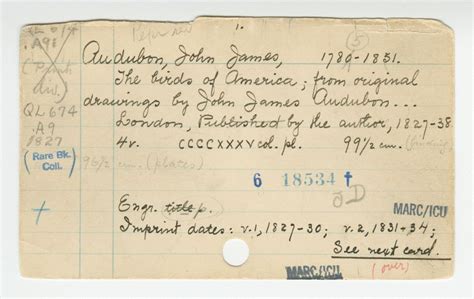 1.
5
.A91
(Print div.)
QL674
.A9
1827
(Rare Bk. Coll.)
Audubon, John James, 1780-1851.
The birds of America; from original
drawings by John James Audubon...
London, Published by the author, 1827-38.
4v. CCCCXXXV col. pl. 99½ cm.
96½ cm. (plates)
6 18534 †
JD
+
Engr. title p.
MARC/ICU
Imprint dates: v.1, 1827-30; v.2, 1831-34;
See next card.
MARC/ICU
(over)